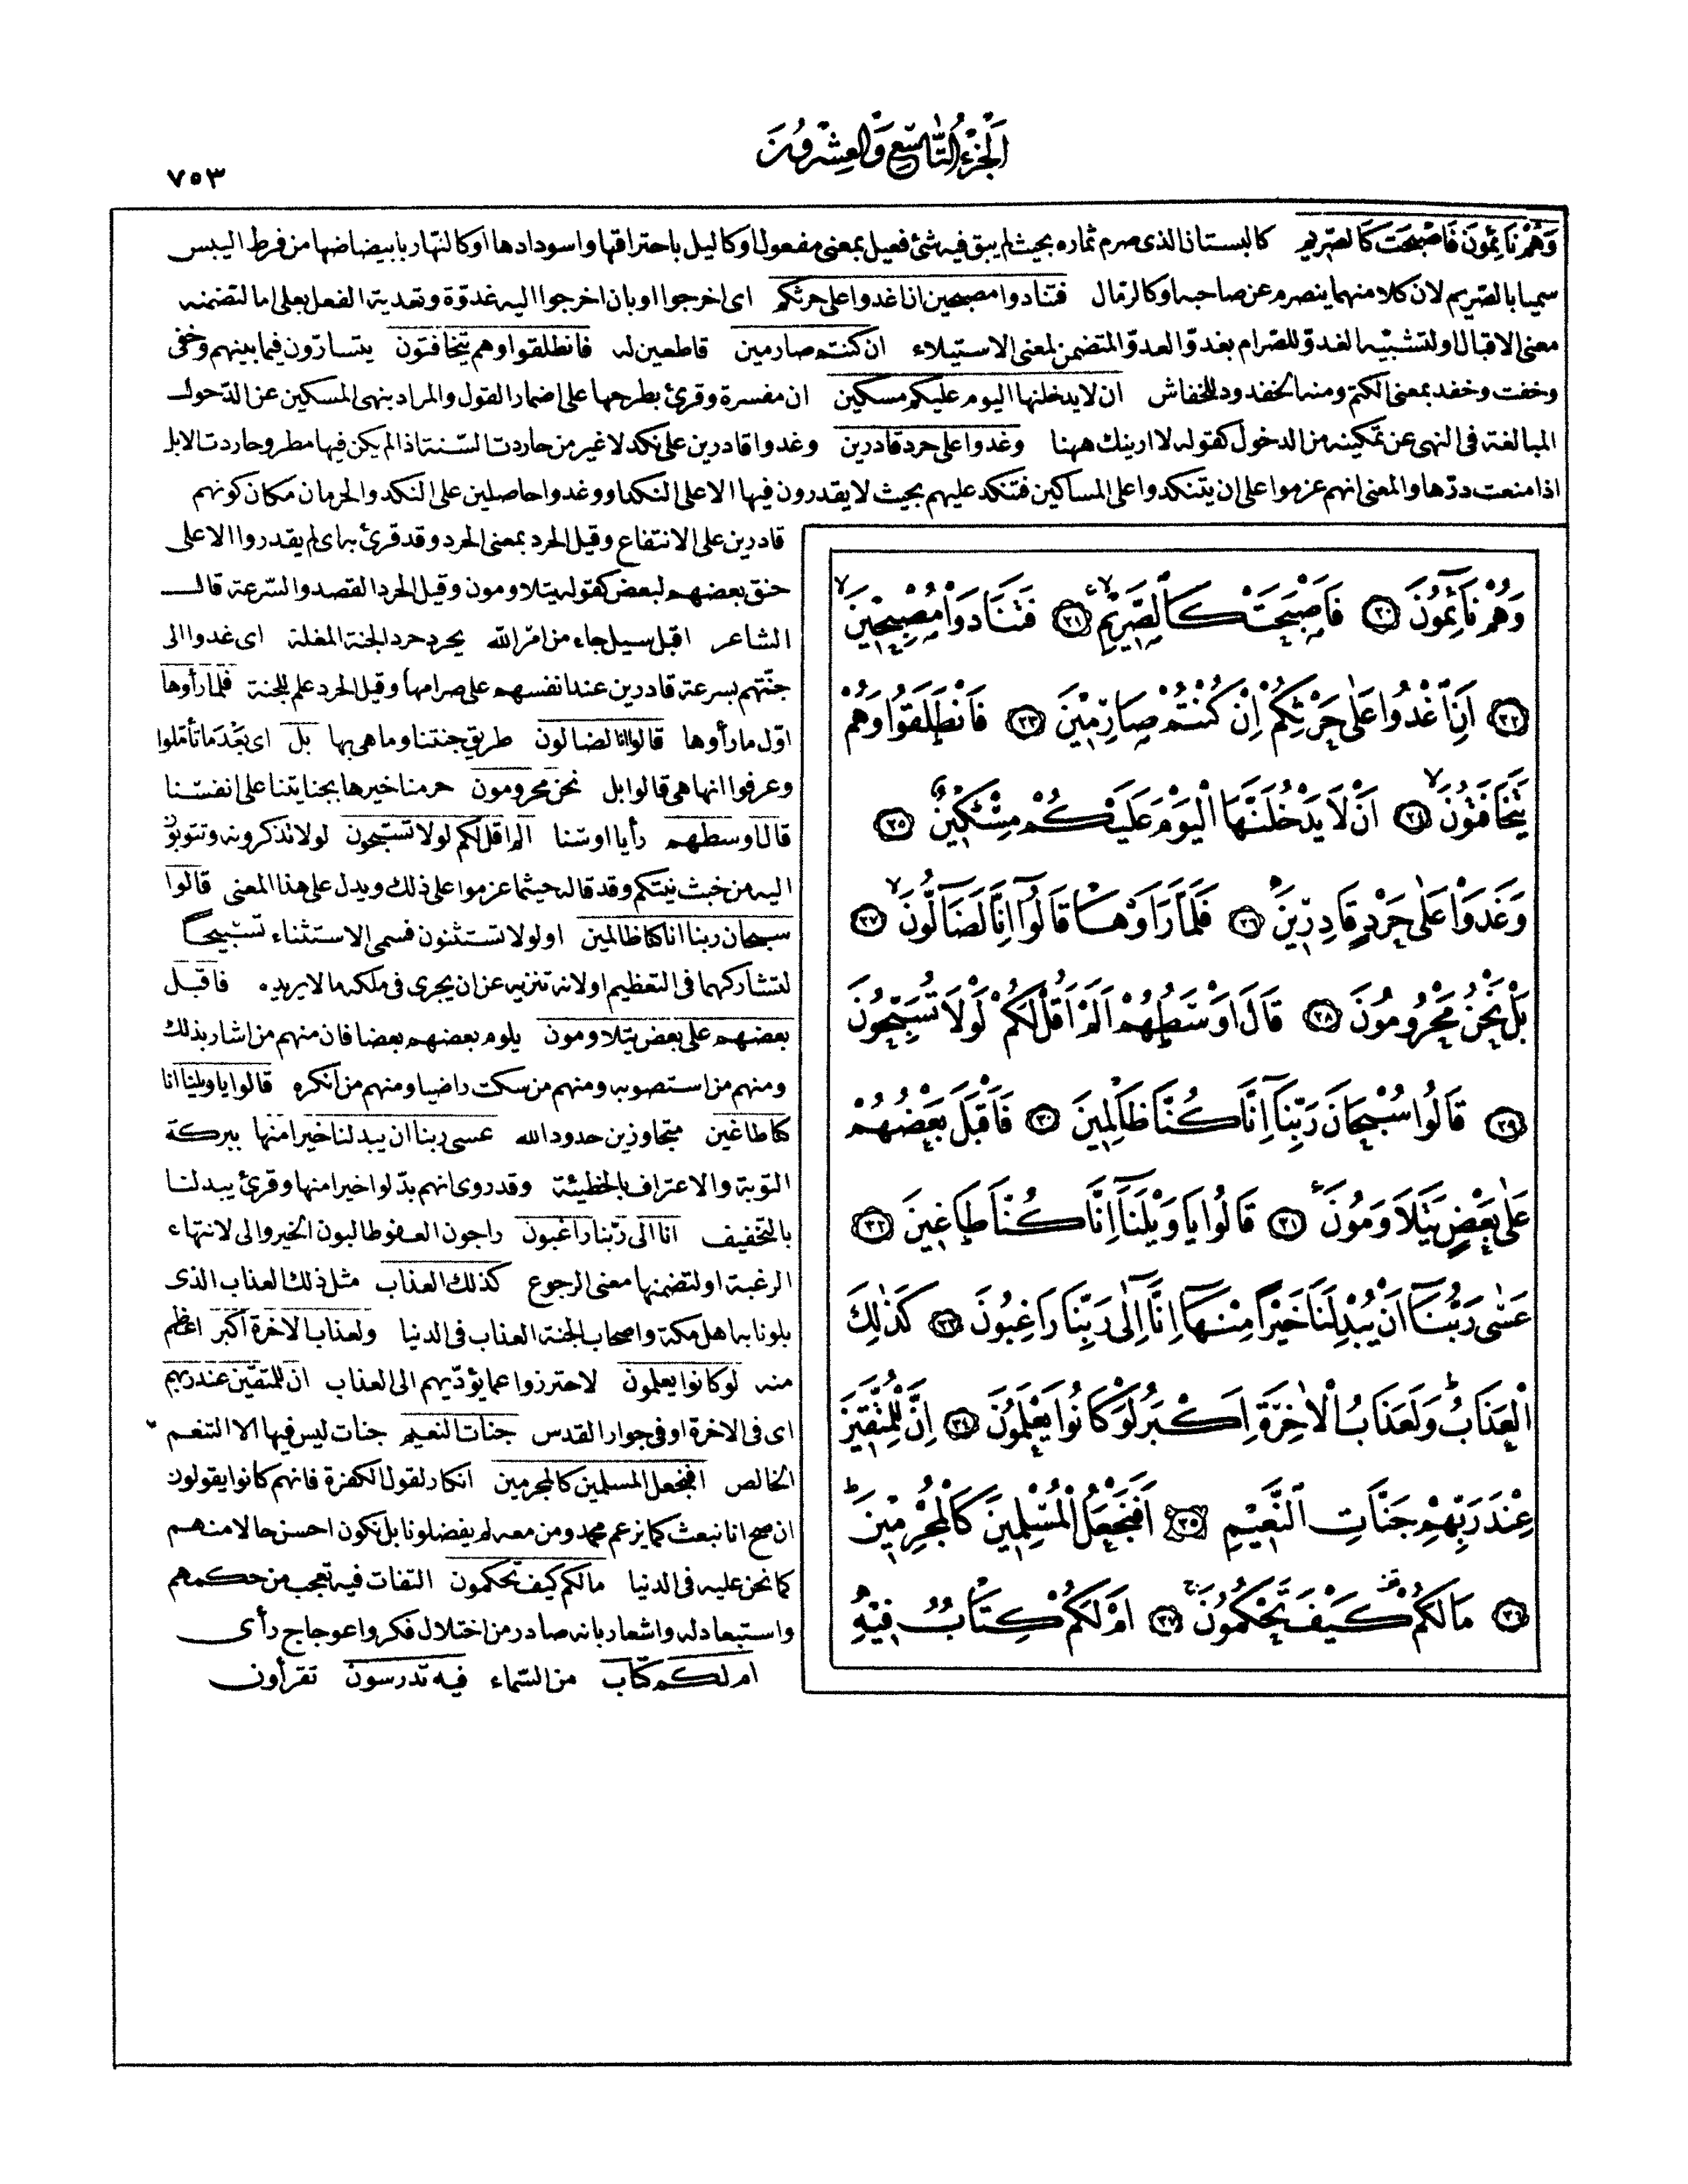 اَلْجُزْءُ التَّاسِعُ وَالْعِشْرُونَ
٧٥٣
وَهُمْ نَائِمُونَ فَاَصْبَحَتْ كَالصَّرِيمِ كالبستان الذى صرم ثماره بحيث لم يبق فيه شئ فعيل بمعنى مفعول او كالليل باحتراقها واسودادها او كالنهار بابيضاضها من فرط اليبس
سميا بالصريم لان كلا منهما ينصرم عن صاحبه او كالرمال فتنادوا مصبحين ان اغدوا على حرثكم اى اخرجوا او بان اخرجوا اليه غدوة وتعدية الفعل بعلى اما لتضمنه
معنى الاقبال او لتشبيه الغدو للصرام بغدو العدو المتضمن لمعنى الاستيلاء ان كنتم صارمين قاطعين له فانطلقوا وهم يتخافتون يتسارّون فيما بينهم وخفى
وخفت وخفد بمعنى الكتم ومنه الخفدود للخفاش ان لا يدخلنها اليوم عليكم مسكين ان مفسرة وقرئ بطرحها على اضمار القول والمراد بنهى المسكين عن الدخول
المبالغة فى النهى عن تمكينه من الدخول كقوله لا ارينك ههنا وغدوا على حرد قادرين وغدوا قادرين على نكد لا غير من حاردت السنة اذا لم يكن فيها مطر وحاردت الابل
اذا منعت درّها والمعنى انهم عزموا على ان يتنكدوا على المساكين فتنكد عليهم بحيث لا يقدرون فيها الا على النكد او وغدوا حاصلين على النكد والحرمان مكان كونهم
قادرين على الانتفاع وقيل الحرد بمعنى الحرد وقد قرئ به اى لم يقدروا الا على
حنق بعضهم لبعض كقوله يتلاومون وقيل الحرد القصد والسرعة قال
الشاعر اقبل سيل جاء من امر الله يحرد حرد الجنة المغلة اى غدوا الى
جنتهم بسرعة قادرين عند انفسهم على صرامها وقيل الحرد علم للجنة فلما رأوها
اوّل ما رأوها قالوا انا لضالون طريق جنتنا وما هى بها بل اى بعد ما تأملوا
وعرفوا انها هى قالوا بل نحن محرومون حرمنا خيرها بجنايتنا على انفسنا
قال اوسطهم رأيا او سنا الم اقل لكم لولا تسبحون لولا تذكرونه وتتوبون
اليه من خبث نيتكم وقد قاله حيثما عزموا على ذلك ويدل على هذا المعنى قالوا
سبحان ربنا انا كنا ظالمين او لولا تستثنون فسمى الاستثناء تسبيحًا
لتشاركهما فى التعظيم او لانه تنزيه عن ان يجرى فى ملكه ما لا يريده فاقبل
بعضهم على بعض يتلاومون يلوم بعضهم بعضا فان منهم من اشار بذلك
ومنهم من استصوبه ومنهم من سكت راضيا ومنهم من انكره قالوا يا ويلنا انا
كنا طاغين متجاوزين حدود الله عسى ربنا ان يبدلنا خيرا منها ببركة
التوبة والاعتراف بالخطيئة وقد روى انهم بدّلوا خيرا منها وقرئ يبدلنا
بالتخفيف انا الى ربنا راغبون راجون العفو طالبون الخير والى لانتهاء
الرغبة او لتضمنها معنى الرجوع كذلك العذاب مثل ذلك العذاب الذى
بلونا به اهل مكة واصحاب الجنة العذاب فى الدنيا ولعذاب الاخرة اكبر اعظم
منه لو كانوا يعلمون لاحترزوا عما يؤدّيهم الى العذاب ان للمتقين عند ربهم
اى فى الاخرة او فى جوار القدس جنات النعيم جنات ليس فيها الا التنعم
الخالص افنجعل المسلمين كالمجرمين انكار لقول الكفرة فانهم كانوا يقولون
ان صح انا نبعث كما يزعم محمد ومن معه لم يفضلونا بل نكون احسن حالا منهم
كما نحن عليه فى الدنيا ما لكم كيف تحكمون التفات فيه تعجب من حكمهم
واستبعاد له واشعار بانه صادر من اختلال فكر واعوجاج رأى
ام لكم كتاب من السماء فيه تدرسون تقرأون
وَهُمْ نَائِمُونَ ﴿٢٠﴾ فَاَصْبَحَتْ كَالصَّرِيمِ ﴿٢١﴾ فَتَنَادَوْا مُصْبِحِينَ
﴿٢٢﴾ اَنِ اغْدُوا عَلٰى حَرْثِكُمْ اِنْ كُنْتُمْ صَارِمِينَ ﴿٢٣﴾ فَانْطَلَقُوا وَهُمْ
يَتَخَافَتُونَ ﴿٢٤﴾ اَنْ لَا يَدْخُلَنَّهَا الْيَوْمَ عَلَيْكُمْ مِسْكِينٌ ﴿٢٥﴾
وَغَدَوْا عَلٰى حَرْدٍ قَادِرِينَ ﴿٢٦﴾ فَلَمَّا رَاَوْهَا قَالُوا اِنَّا لَضَالُّونَ ﴿٢٧﴾
بَلْ نَحْنُ مَحْرُومُونَ ﴿٢٨﴾ قَالَ اَوْسَطُهُمْ اَلَمْ اَقُلْ لَكُمْ لَوْلَا تُسَبِّحُونَ
﴿٢٩﴾ قَالُوا سُبْحَانَ رَبِّنَا اِنَّا كُنَّا ظَالِمِينَ ﴿٣٠﴾ فَاَقْبَلَ بَعْضُهُمْ
عَلٰى بَعْضٍ يَتَلَاوَمُونَ ﴿٣١﴾ قَالُوا يَا وَيْلَنَا اِنَّا كُنَّا طَاغِينَ ﴿٣٢﴾
عَسٰى رَبُّنَا اَنْ يُبْدِلَنَا خَيْرًا مِنْهَا اِنَّا اِلٰى رَبِّنَا رَاغِبُونَ ﴿٣٣﴾ كَذٰلِكَ
الْعَذَابُ وَلَعَذَابُ الْاٰخِرَةِ اَكْبَرُ لَوْ كَانُوا يَعْلَمُونَ ﴿٣٤﴾ اِنَّ لِلْمُتَّقِينَ
عِنْدَ رَبِّهِمْ جَنَّاتِ النَّعِيمِ ﴿٣٥﴾ اَفَنَجْعَلُ الْمُسْلِمِينَ كَالْمُجْرِمِينَ
﴿٣٦﴾ مَا لَكُمْ كَيْفَ تَحْكُمُونَ ﴿٣٧﴾ اَمْ لَكُمْ كِتَابٌ فِيهِ